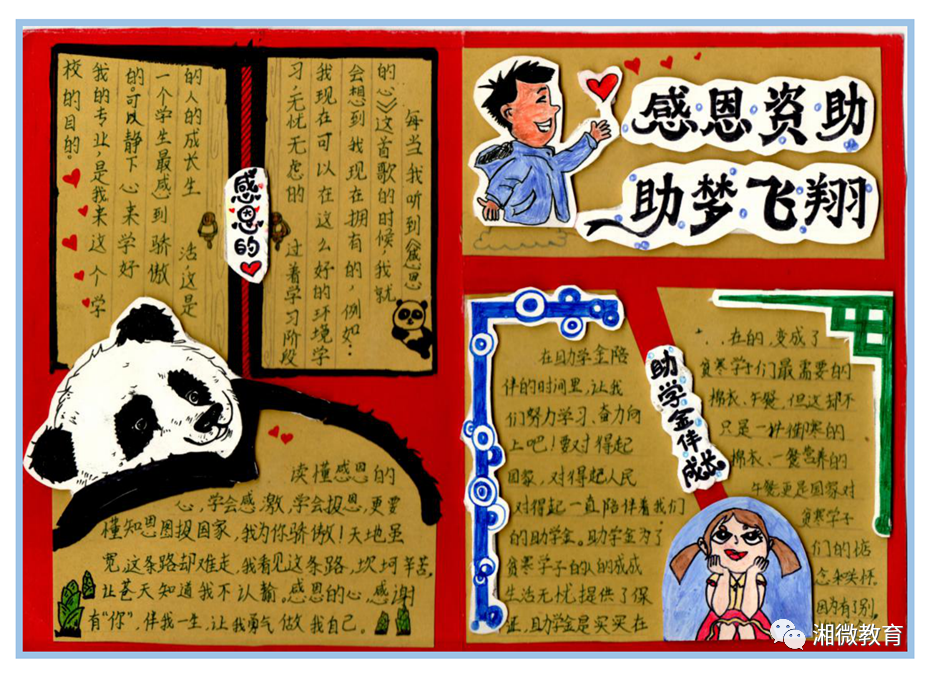 感恩资助
助梦飞翔
感恩的
每当我听到《感恩
的心》这首歌的时候,我就
会想到我现在拥有的,例如:
我现在可以在这么好的环境学
习,无忧无虑的过着学习阶段
的人的成长生活这是
一个学生最感到骄傲
的。可以静下心来学好
我的专业,是我来这个学
校的目的。
读懂感恩的
心,学会感激,学会报恩,更要
懂知恩图报国家,我为你骄傲!天地虽
宽,这条路却难走,我看见这条路,坎坷辛苦,
让苍天知道我不认输。感恩的心感谢
有“你”,伴我一生,让我勇气做我自己。
助学金伴成长
在助学金陪
伴的时间里,让我
们努力学习、奋力向
上吧!要对得起
国家,对得起人民
对得起一直陪伴着我们
的助学金。助学金为了
贫寒学子的人的成成
生活无忧提供了保
证,且助学金是买买在
..在的,变成了
贫寒学子们最需要的
棉衣、午餐,但这却不
只是一件御寒的
棉衣、一餐营养的
午餐更是国家对
贫寒学子
们的惦
因为有了别.
湘微教育